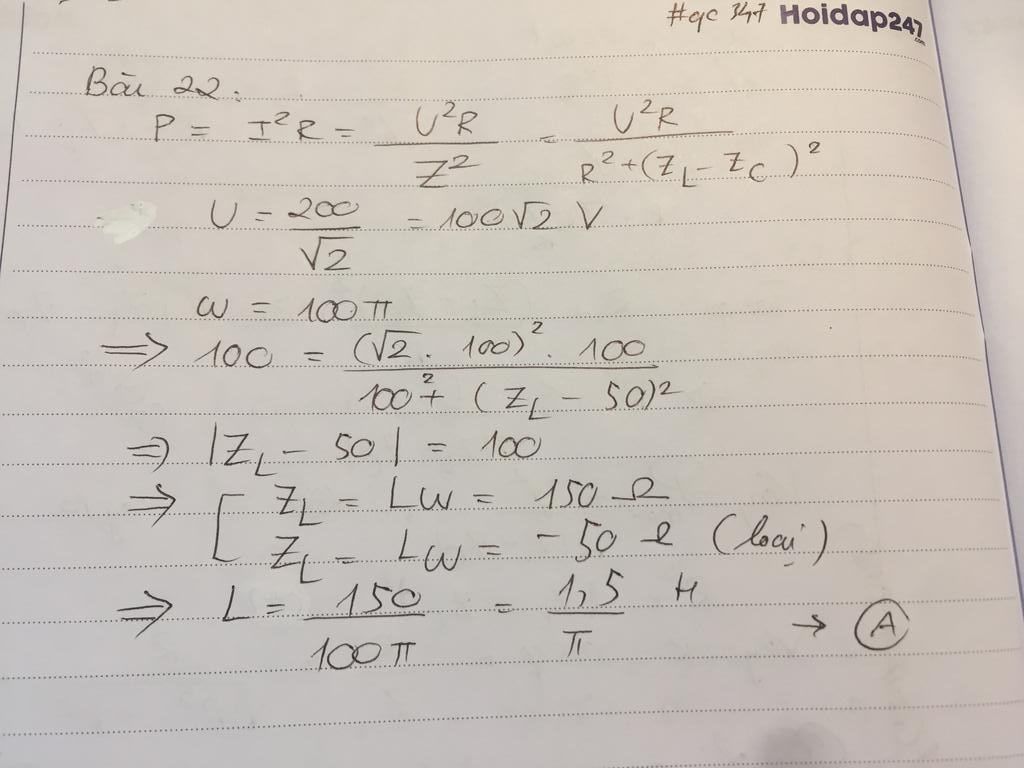 #qc 347 Hoidap247.com
Bài 22:
P = I²R = U²R / Z² = U²R / R² + (Z_L - Z_C)²
U = 200 / √2 = 100√2 V
ω = 100π
⇒ 100 = (√2 . 100)² . 100 / 100² + (Z_L - 50)²
⇒ |Z_L - 50| = 100
⇒ [ Z_L = Lω = 150 Ω
Z_L = Lω = -50 Ω (loại)
⇒ L = 150 / 100π = 1,5 / π H → A